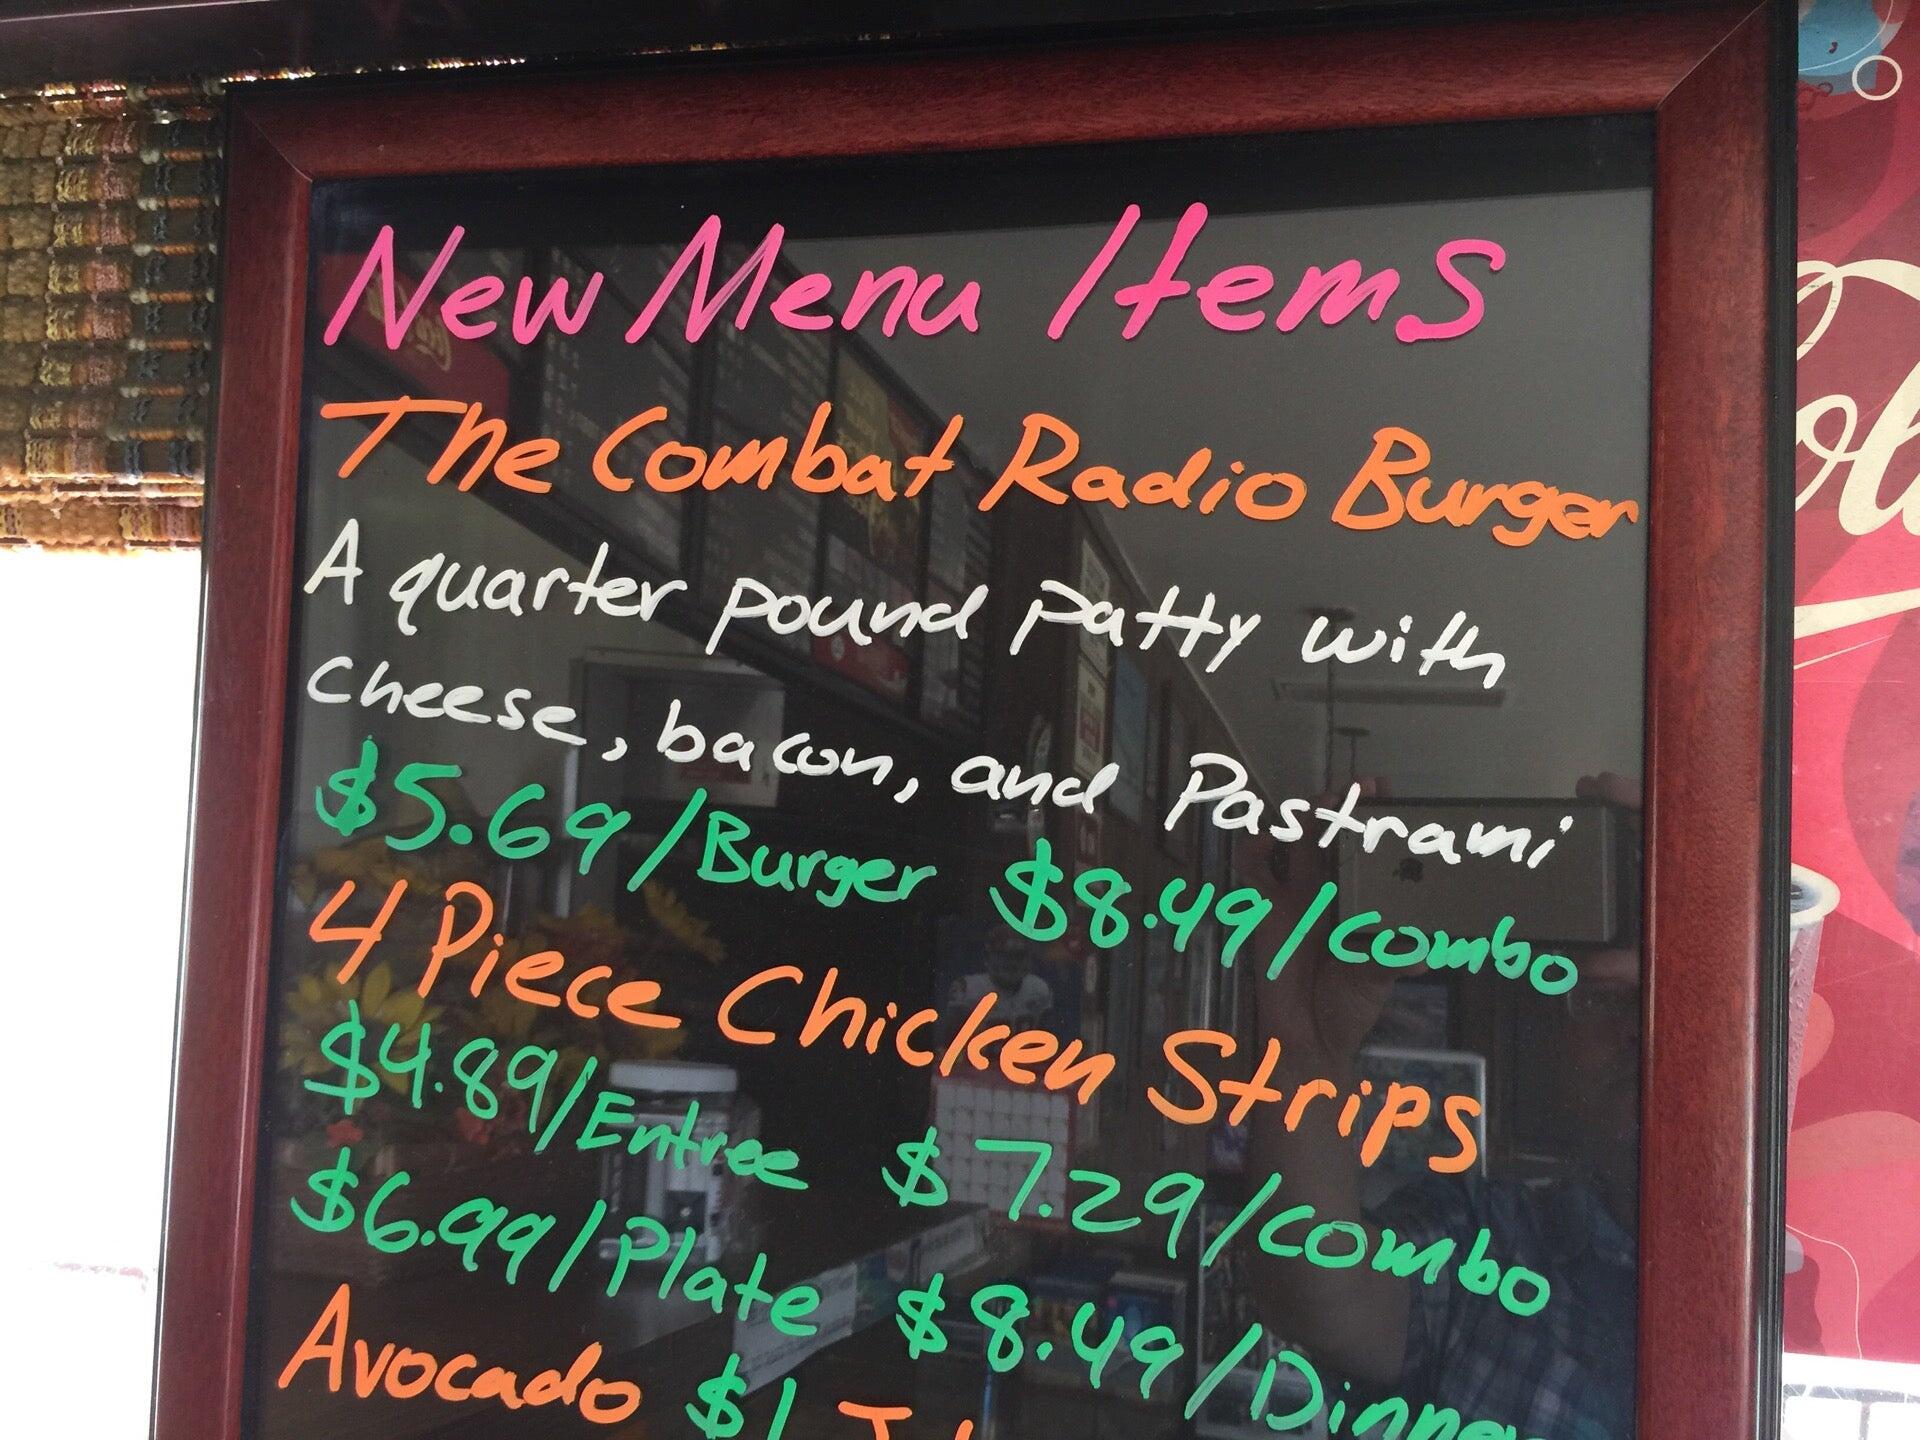 New Menu Items
The Combat Radio Burger
A quarter pound patty with
Cheese, bacon, and Pastrami
$5.69/Burger $8.49/Combo
4 Piece Chicken Strips
$4.89/Entree $7.29/Combo
$6.99/Plate $8.49/Dinner
Avocado $1